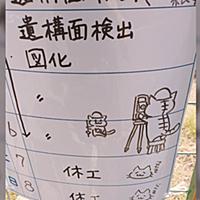 遺構面検出
図化
6
7 休工
日 8 休工